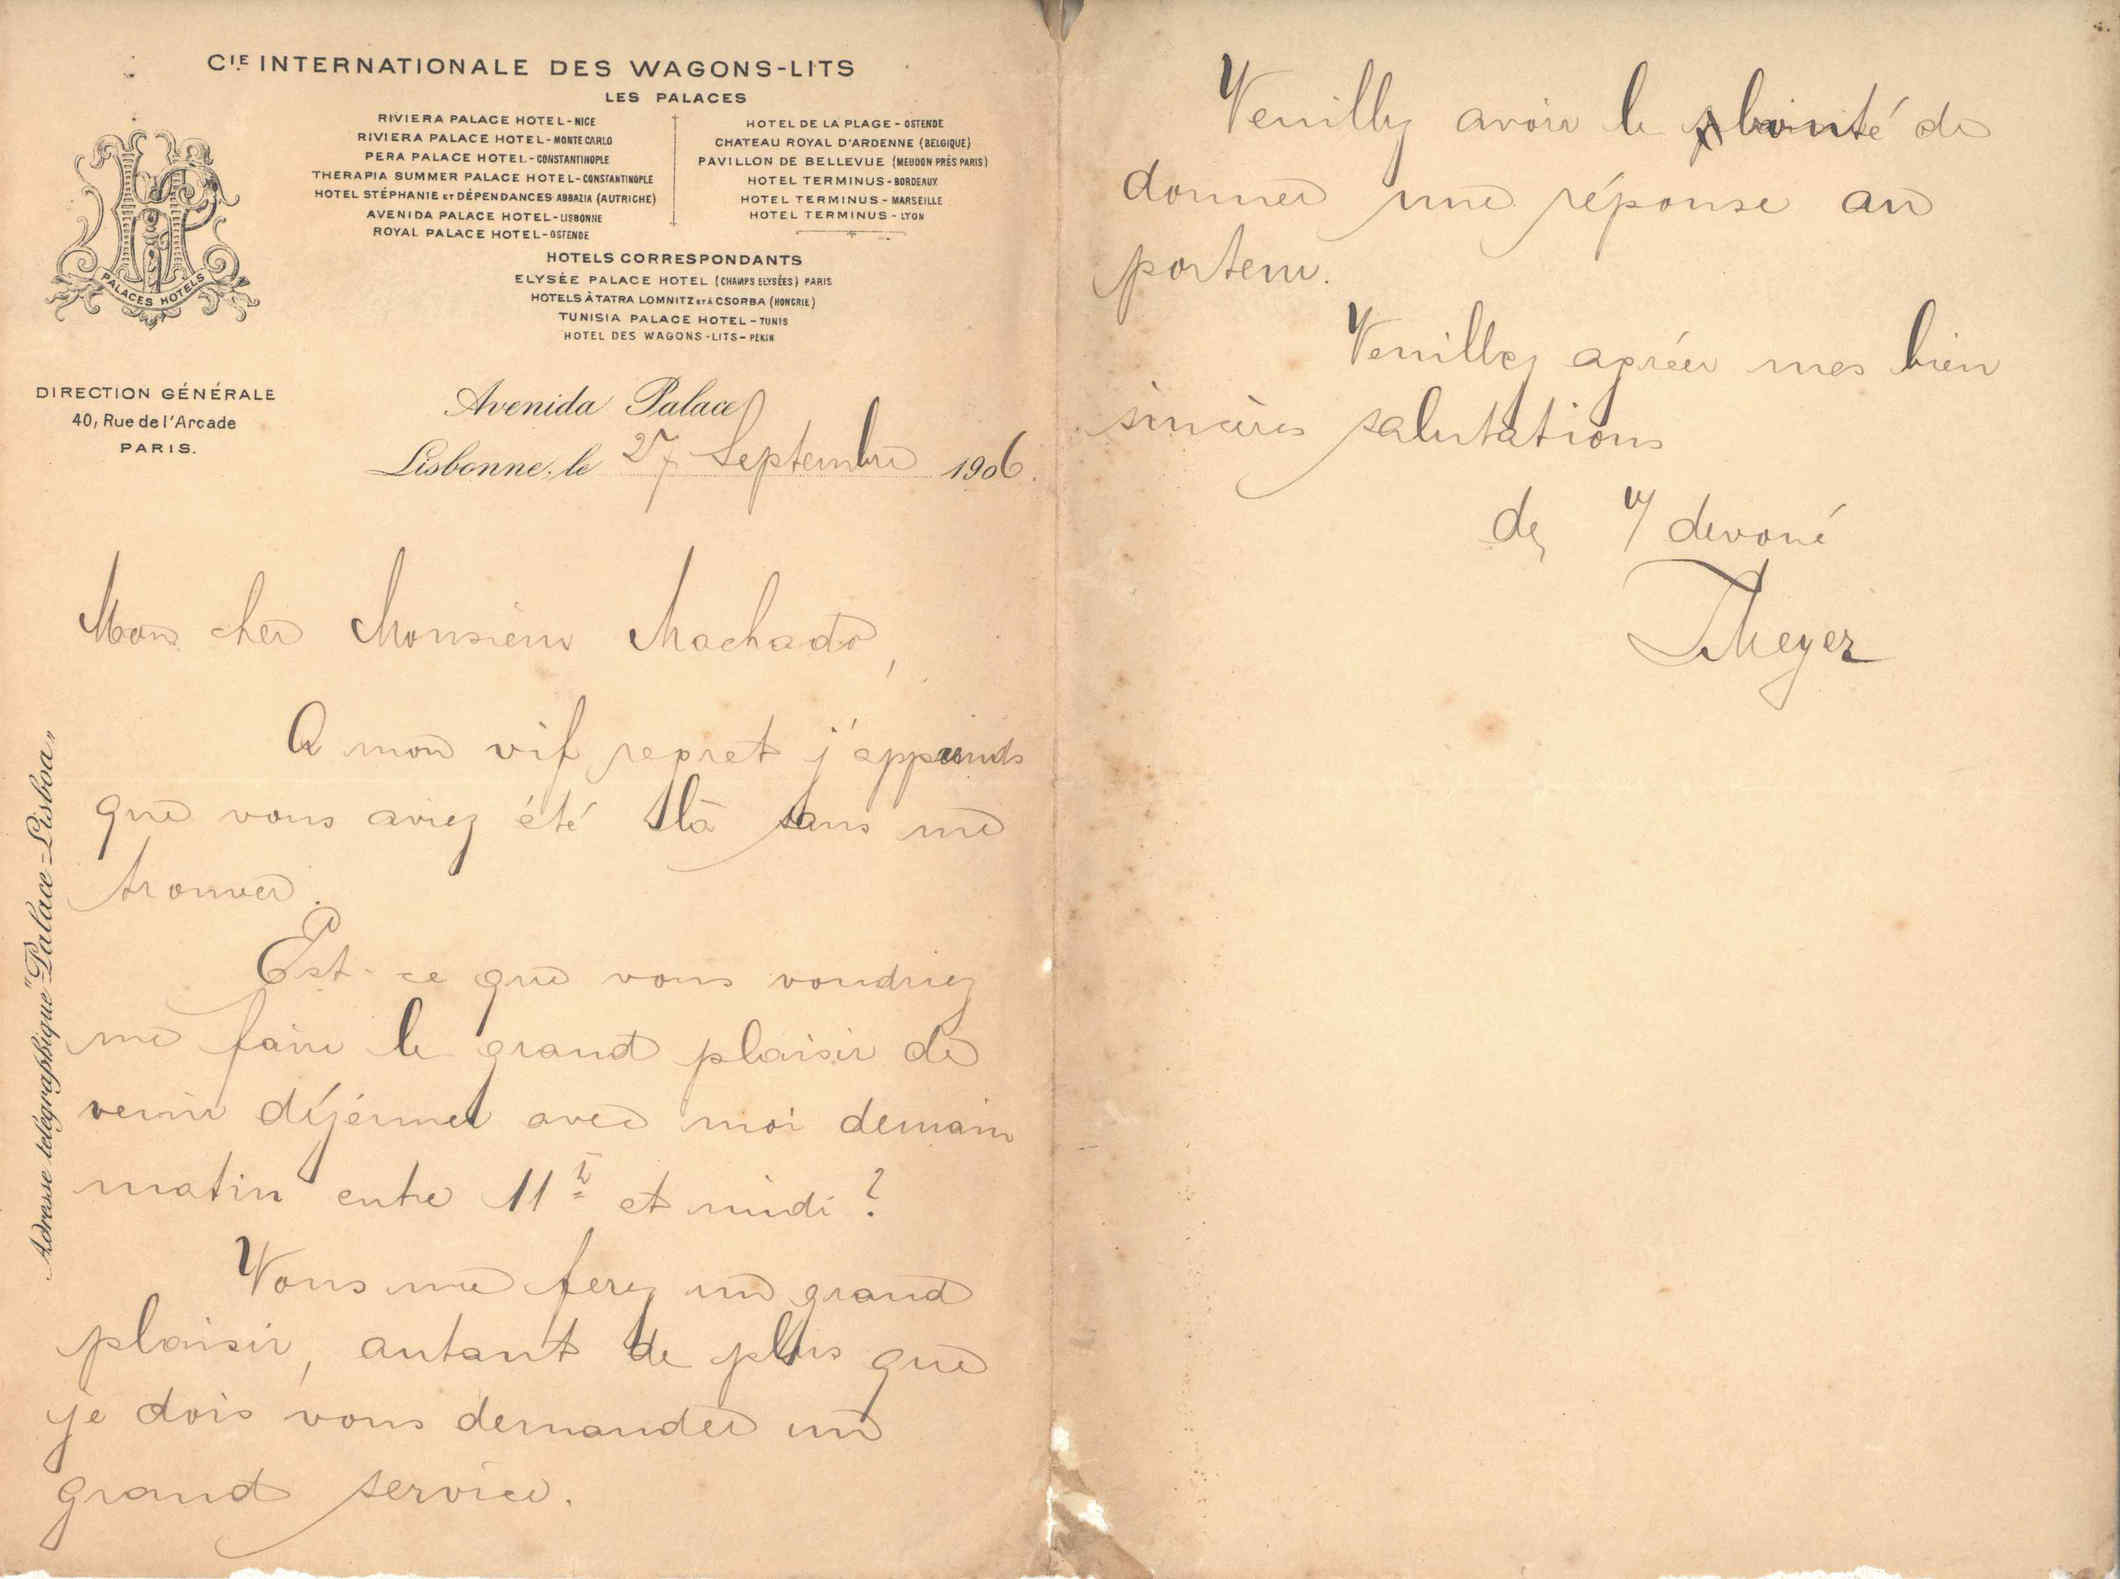 CIE INTERNATIONALE DES WAGONS-LITS
LES PALACES
RIVIERA PALACE HOTEL - NICE
RIVIERA PALACE HOTEL - MONTE CARLO
PERA PALACE HOTEL - CONSTANTINOPLE
THERAPIA SUMMER PALACE HOTEL - CONSTANTINOPLE
HOTEL STÉPHANIE ET DÉPENDANCES ABBAZIA (AUTRICHE)
AVENIDA PALACE HOTEL - LISBONNE
ROYAL PALACE HOTEL - OSTENDE
HOTEL DE LA PLAGE - OSTENDE
CHATEAU ROYAL D'ARDENNE (BELGIQUE)
PAVILLON DE BELLEVUE (MEUDON PRÈS PARIS)
HOTEL TERMINUS - BORDEAUX
HOTEL TERMINUS - MARSEILLE
HOTEL TERMINUS - LYON
HOTELS CORRESPONDANTS
ELYSÉE PALACE HOTEL (CHAMPS ELYSÉES) PARIS
HOTELS À TATRA LOMNITZ ET À CSORBA (HONGRIE)
TUNISIA PALACE HOTEL - TUNIS
HOTEL DES WAGONS-LITS - PEKIN
PALACES HOTELS
DIRECTION GÉNÉRALE
40, Rue de l'Arcade
PARIS.
Avenida Palace
Lisbonne, le 27 Septembre 1906.
Adresse télégraphique "Palace-Lisboa"
Mon cher Monsieur Machado,
A mon vif regret j'apprends
que vous aviez été là sans me
trouver.
Est-ce que vous voudriez
me faire le grand plaisir de
venir déjeuner avec moi demain
matin entre 11 h et midi ?
Vous me ferez un grand
plaisir, autant de plus que
je dois vous demander un
grand service.
Veuillez avoir la bonté de
donner une réponse au
porteur.
Veuillez agréer mes bien
sincères salutations
de v/ devoué
Meyer